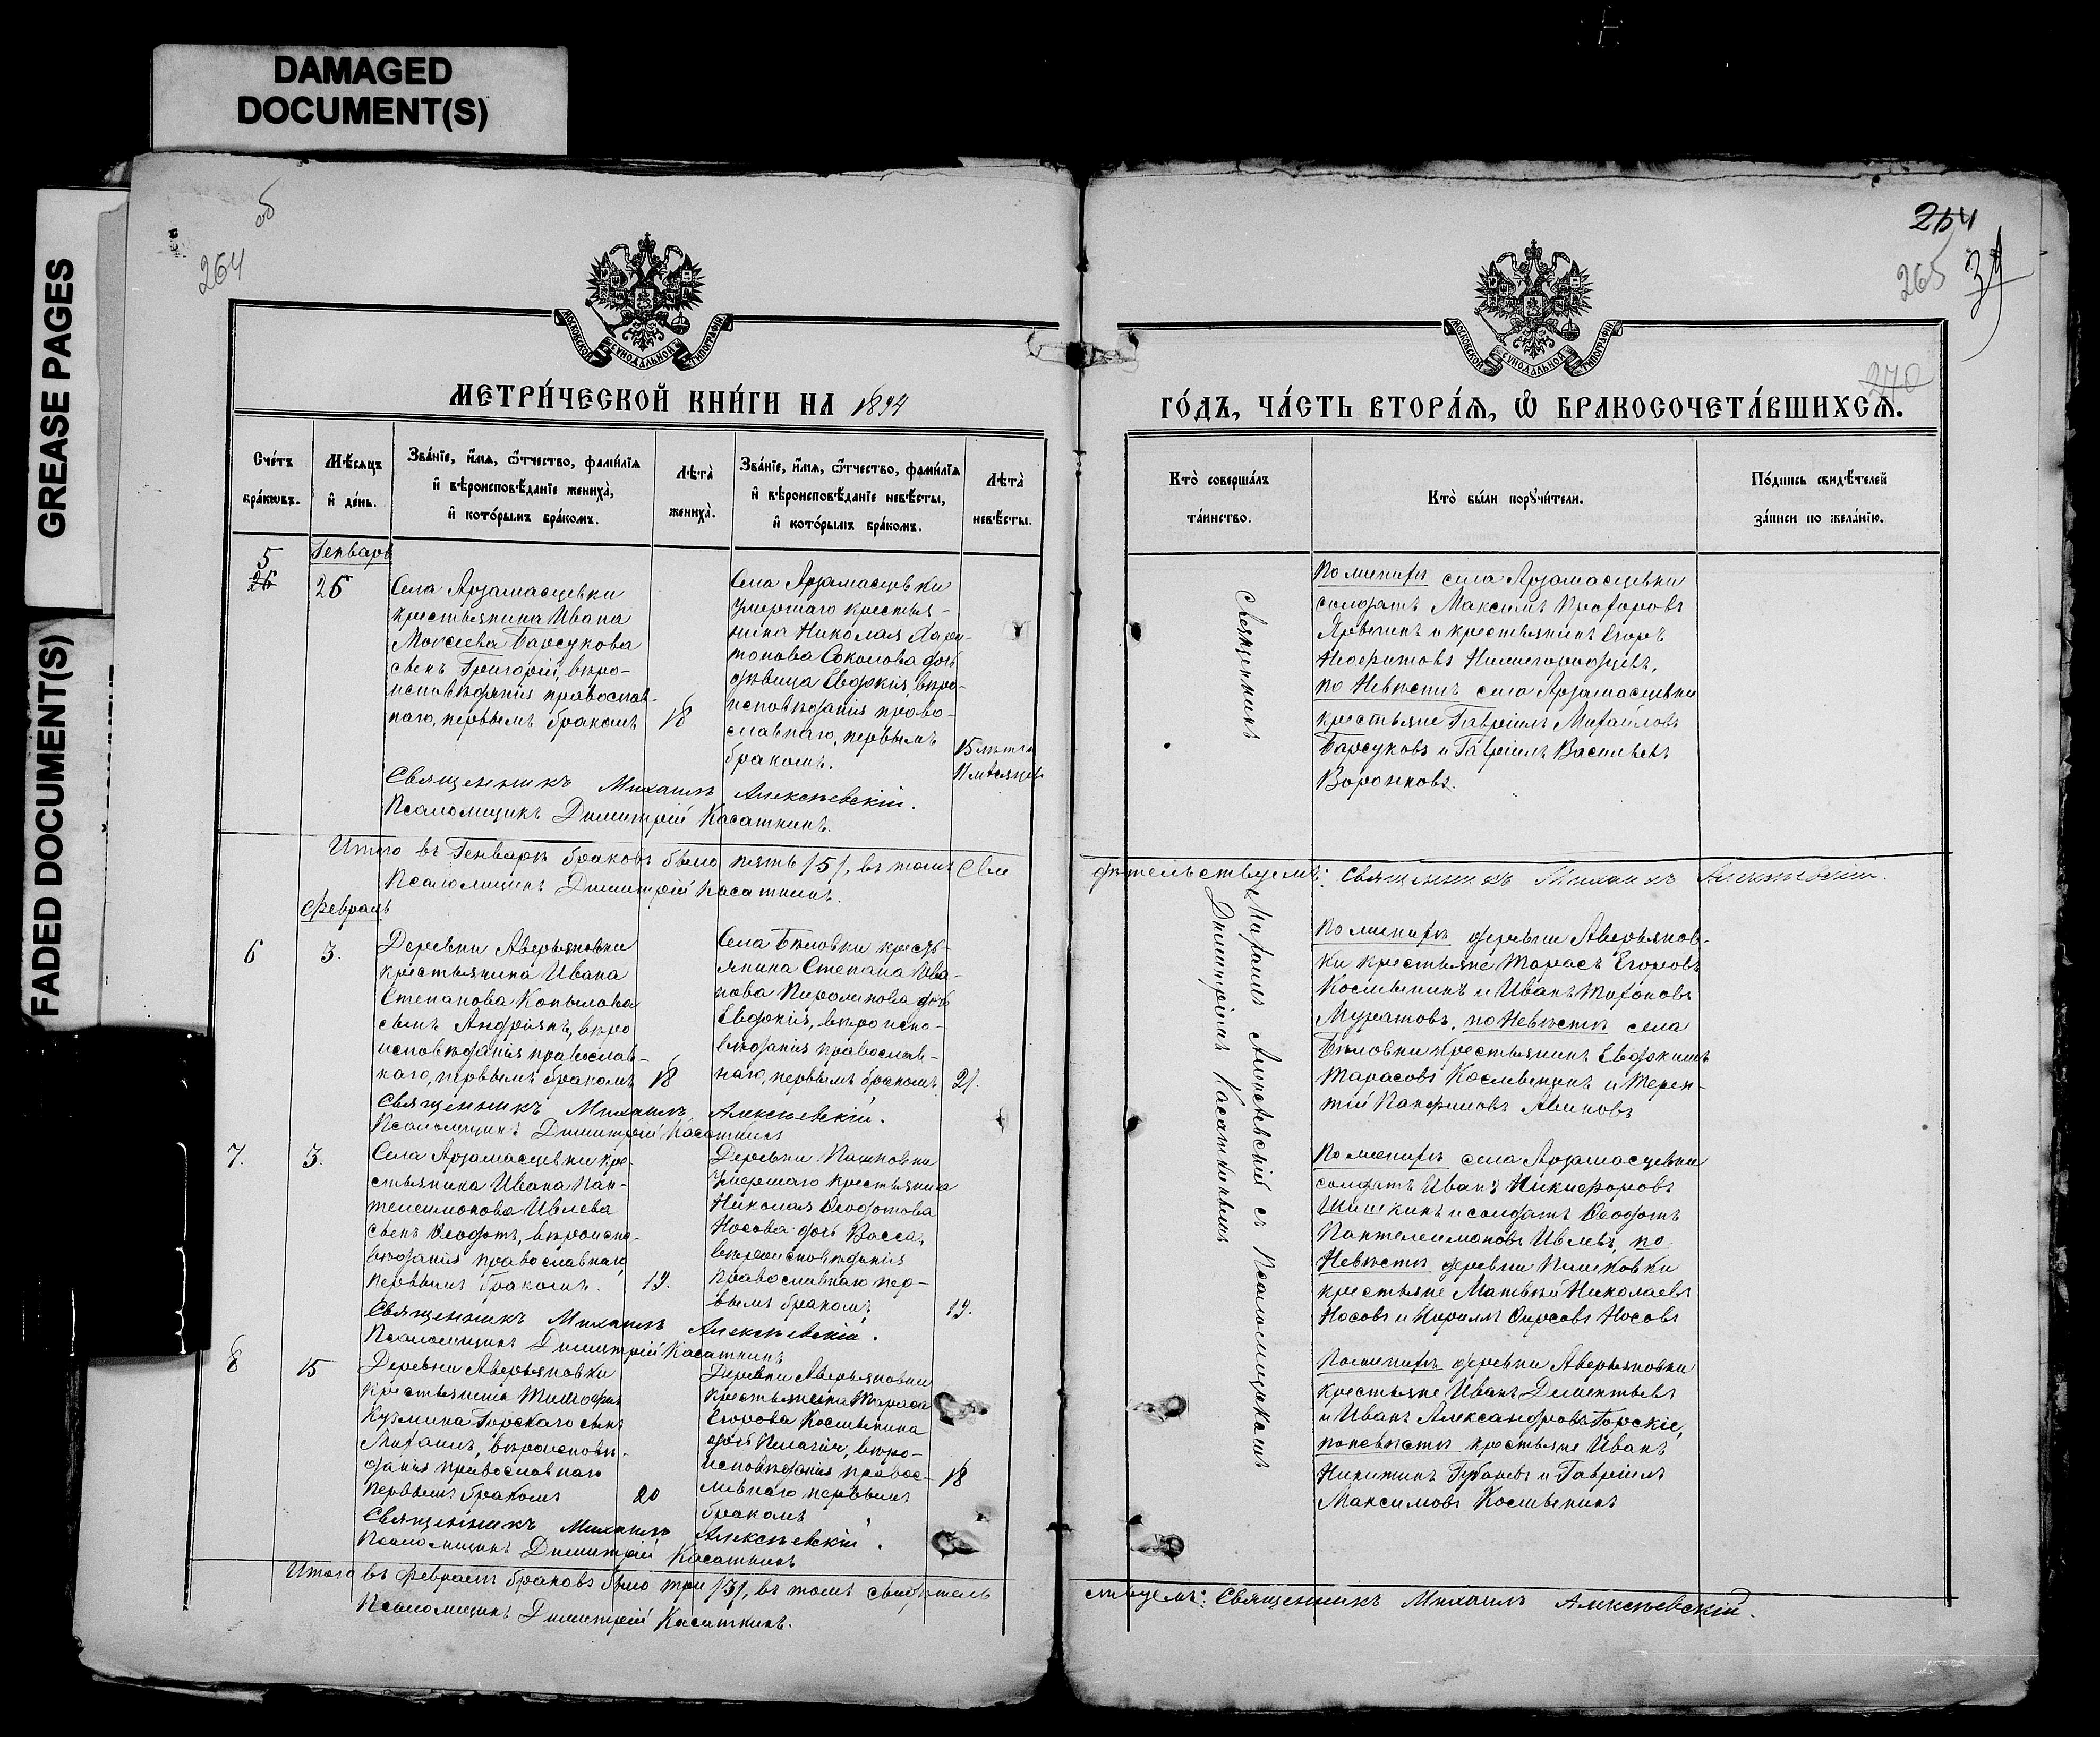 DAMAGED
DOCUMENT(S)
GREASE PAGES
FADED DOCUMENT(S)
об
264
МОСКОВСКОЙ СѴНОДАЛЬНОЙ ТИПОГРАФІИ
МЕТРИ́ЧЕСКОЙ КНИ́ГИ НА 1894
Сче́тъ бра́кѡвъ.
Мѣ́сяцъ и҆ де́нь.
Зва́нїе, и҆́мѧ, ѻ҆́тчество, фамилїѧ
и҆ вѣроисповѣ́данїе жениха̀,
и҆ кото́рымъ бра́комъ.
Лѣта̀ жениха̀.
Зва́нїе, и҆́мѧ, ѻ҆́тчество, фамилїѧ
и҆ вѣроисповѣ́данїе невѣ́сты,
и҆ кото́рымъ бра́комъ.
Лѣта̀ невѣ́сты.
Генварь
5
26
26
Села Арзамасцевки
крестьянина Ивана
Моисеева Барсукова
сынъ Григорій, вѣро-
исповѣданія православ-
наго, первымъ бракомъ
18
Села Арзамасцевки
умершаго крестья-
нина Николая Хари-
тонова Соколова дочь
дѣвица Евдокія, вѣро-
исповѣданія право-
славнаго, первымъ
бракомъ.
15 лѣтъ и
мѣсяцев
Священникъ Михаилъ Алексѣевскій.
Псаломщикъ Димитрій Касаткинъ.
Итого въ Генварѣ браковъ было пять /5/, въ томъ сви
Псаломщикъ Димитрій Касаткинъ.
Февраль
6
3.
Деревни Аверьяновки
крестьянина Ивана
Степанова Копылова
сынъ Андріянъ, вѣро
исповѣданія православ-
наго, первымъ бракомъ
18
Села Бѣловки кресть-
янина Степана Ива-
нова дочь
Евдокія, вѣроиспо-
вѣданія православ-
наго, первымъ бракомъ.
21.
Священникъ Михаилъ Алексѣевскій.
Псаломщикъ Димитрій Касаткинъ
7.
3.
Села Арзамасцевки кре-
стьянина Ивана Пан-
телеимонова Ивлева
сынъ Ѳеодотъ, вѣроиспо-
вѣданія православнаго,
первымъ бракомъ.
19.
Деревни Пашковки
умершаго крестьянина
Николая Ѳеодотова
Носова дочь Васса,
вѣроисповѣданія
православнаго пер-
вымъ бракомъ
19.
Священникъ Михаилъ Алексѣевскій.
Псаломщикъ Димитрій Касаткинъ
8
15
Деревни Аверьяновки
крестьянина Тимофея
Кузмина Горскаго сынъ
Михаилъ, вѣроисповѣ-
данія православнаго
первымъ бракомъ
20
Деревни Аверьяновки
крестьянина Тараса
Егорова Космынина
дочь Пелагія, вѣро-
исповѣданія правос-
лавнаго первымъ
бракомъ
18
Священникъ Михаилъ Алексѣевскій.
Псаломщикъ Димитрій Касаткинъ
Итого въ Февралѣ браковъ было три /3/, въ томъ свидѣтель
Псаломщикъ Димитрій Касаткинъ.
264
265
39
270
МОСКОВСКОЙ СѴНОДАЛЬНОЙ ТИПОГРАФІИ
ГО́ДЪ, ЧА́СТЬ ВТОРА́Ѧ, Ѽ БРАКОСОЧЕТА́ВШИХСѦ.
Кто̀ соверша́лъ
та́инство.
Кто̀ бы́ли порꙋчи́тели.
По́дпись свидѣ́телей
за́писи по жела́нїю.
Священникъ
Михаилъ Алексѣевскій съ Псаломщикомъ
Димитріемъ Касаткинымъ
По женихѣ села Арзамасцевки
солдатъ Максимъ
и крестьянинъ Егоръ
Неофитовъ Нижегородцевъ,
по Невѣстѣ села Арзамасцевки
крестьяне Гавріилъ Михайловъ
Барсуковъ и Гавріилъ Васильевъ
Воронковъ.
дѣтельствуемъ: Священникъ Михаилъ Алексѣевскій.
По женихѣ деревни Аверьянов-
ки крестьяне Тарасъ Егоровъ
Космынинъ и Иванъ Тихоновъ
Муратовъ, по Невѣстѣ села
Бѣловки крестьянинъ Евдокимъ
Тарасовъ Космынинъ и Терен-
тій Панфиловъ
По женихѣ села Арзамасцевки
солдатъ Иванъ Никифоровъ
Шишкинъ и солдатъ Ѳеодотъ
Пантелеимоновъ Ивлевъ, по
Невѣстѣ деревни Пашковки
крестьяне Матвѣй Николаевъ
Носовъ и Кириллъ Фирсовъ Носовъ
По женихѣ деревни Аверьяновки
крестьяне Иванъ Дементьевъ
и Иванъ Александровъ Горскіе,
по невѣстѣ крестьяне Иванъ
Никитинъ Губановъ и Гавріилъ
Максимовъ Космынинъ
ствуемъ: Священникъ Михаилъ Алексѣевскій.